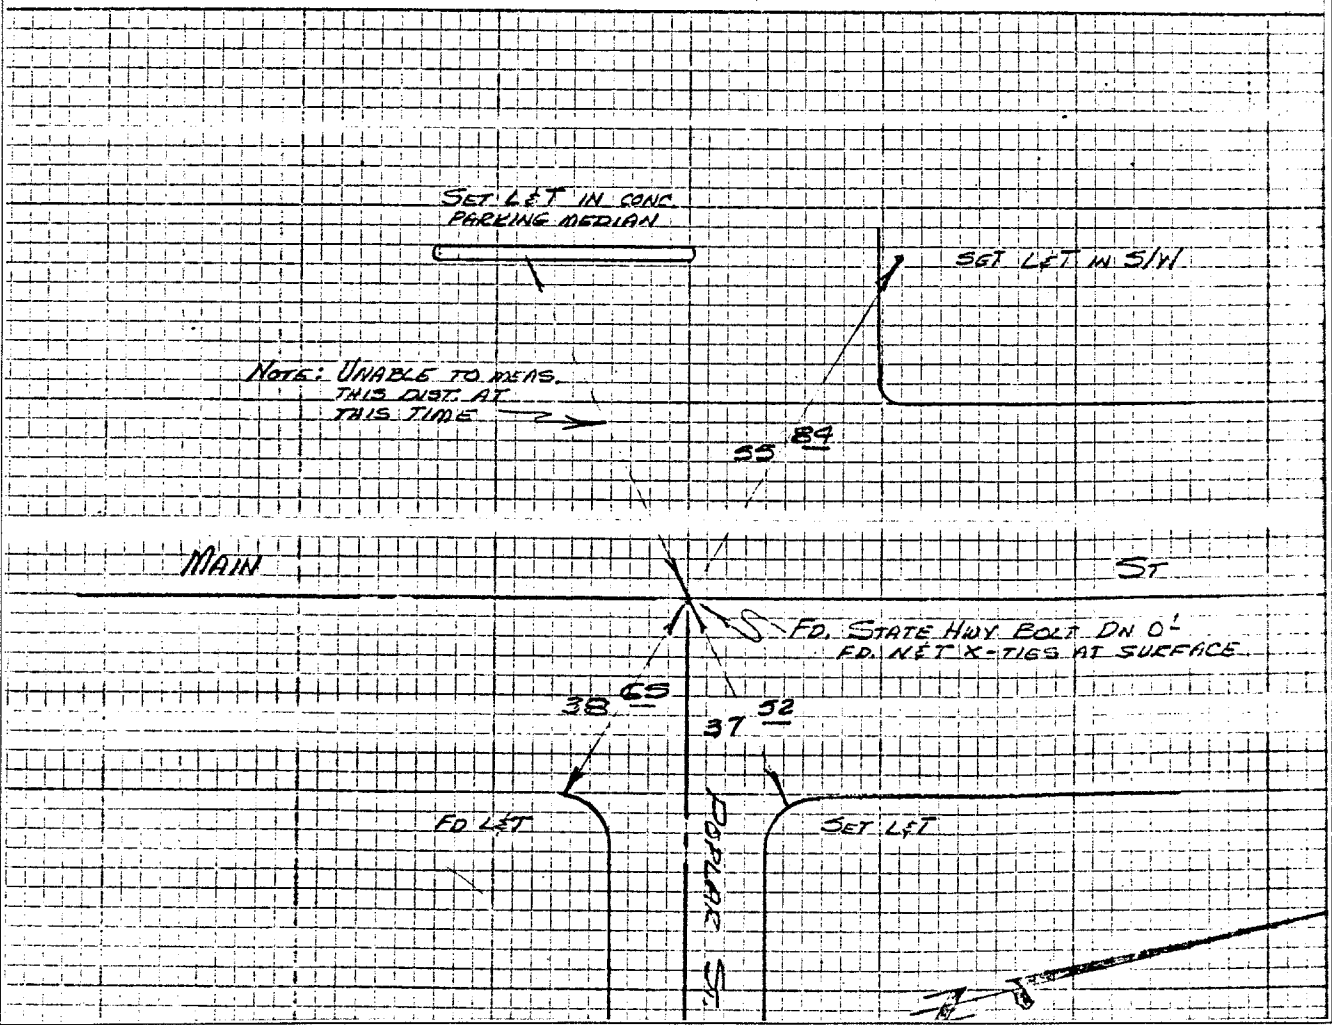 SET L&T IN CONC.
PARKING MEDIAN
SET L&T IN S/W
NOTE: UNABLE TO MEAS.
THIS DIST. AT
THIS TIME
55 84
MAIN ST
FD. STATE HWY BOLT DN 0'
FD. N&T X-TIES AT SURFACE
38 65
37 52
FD L&T
SET L&T
POPLAR ST.
N